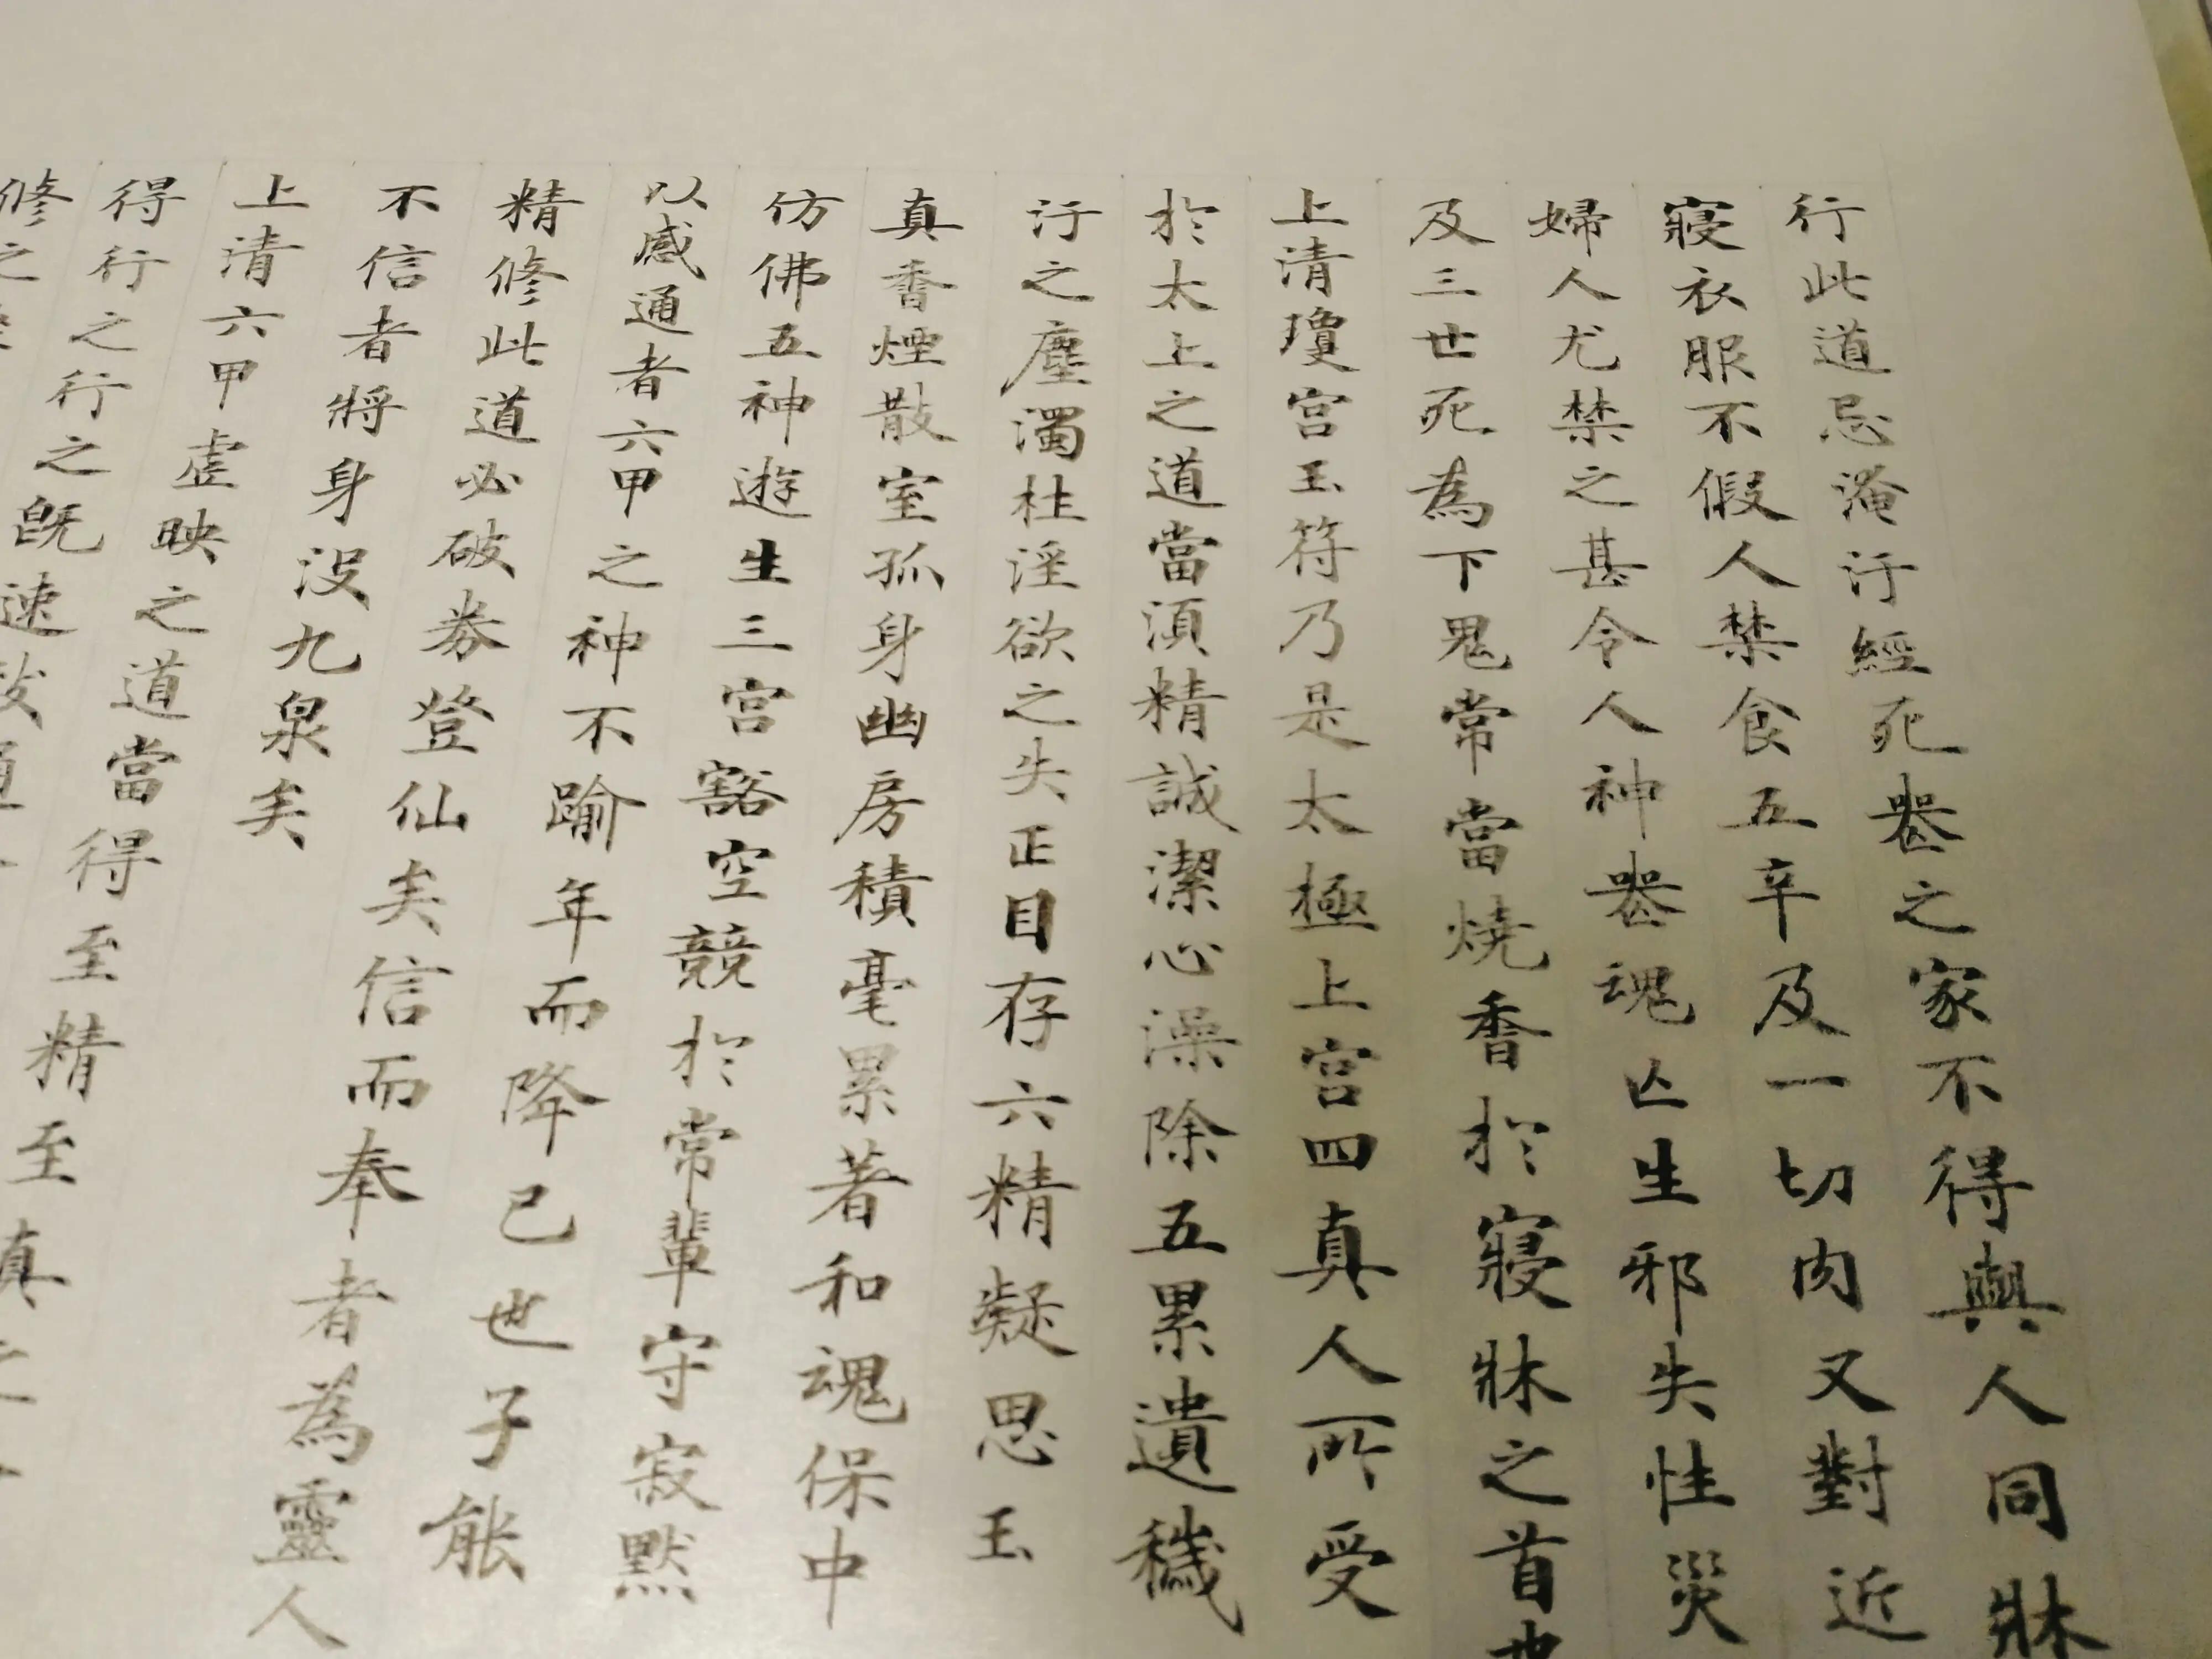 行此道忌淹汙經死喪之家不得與人同牀
寢衣服不假人禁食五辛及一切肉又對近
婦人尤禁之甚令人神喪魂亡生邪失性災
及三世死為下鬼常當燒香於寢牀之首也
上清瓊宮玉符乃是太極上宮四真人所受
於太上之道當須精誠潔心澡除五累遺穢
汙之塵濁杜淫欲之失正目存六精凝思玉
真香煙散室孤身幽房積毫累著和魂保中
仿佛五神遊生三宮豁空競於常輩守寂默
以感通者六甲之神不踰年而降已也子能
精修此道必破券登仙矣信而奉者為靈人
不信者將身沒九泉矣
上清六甲虛映之道當得至精至真之
得行之行之既速致通
修之